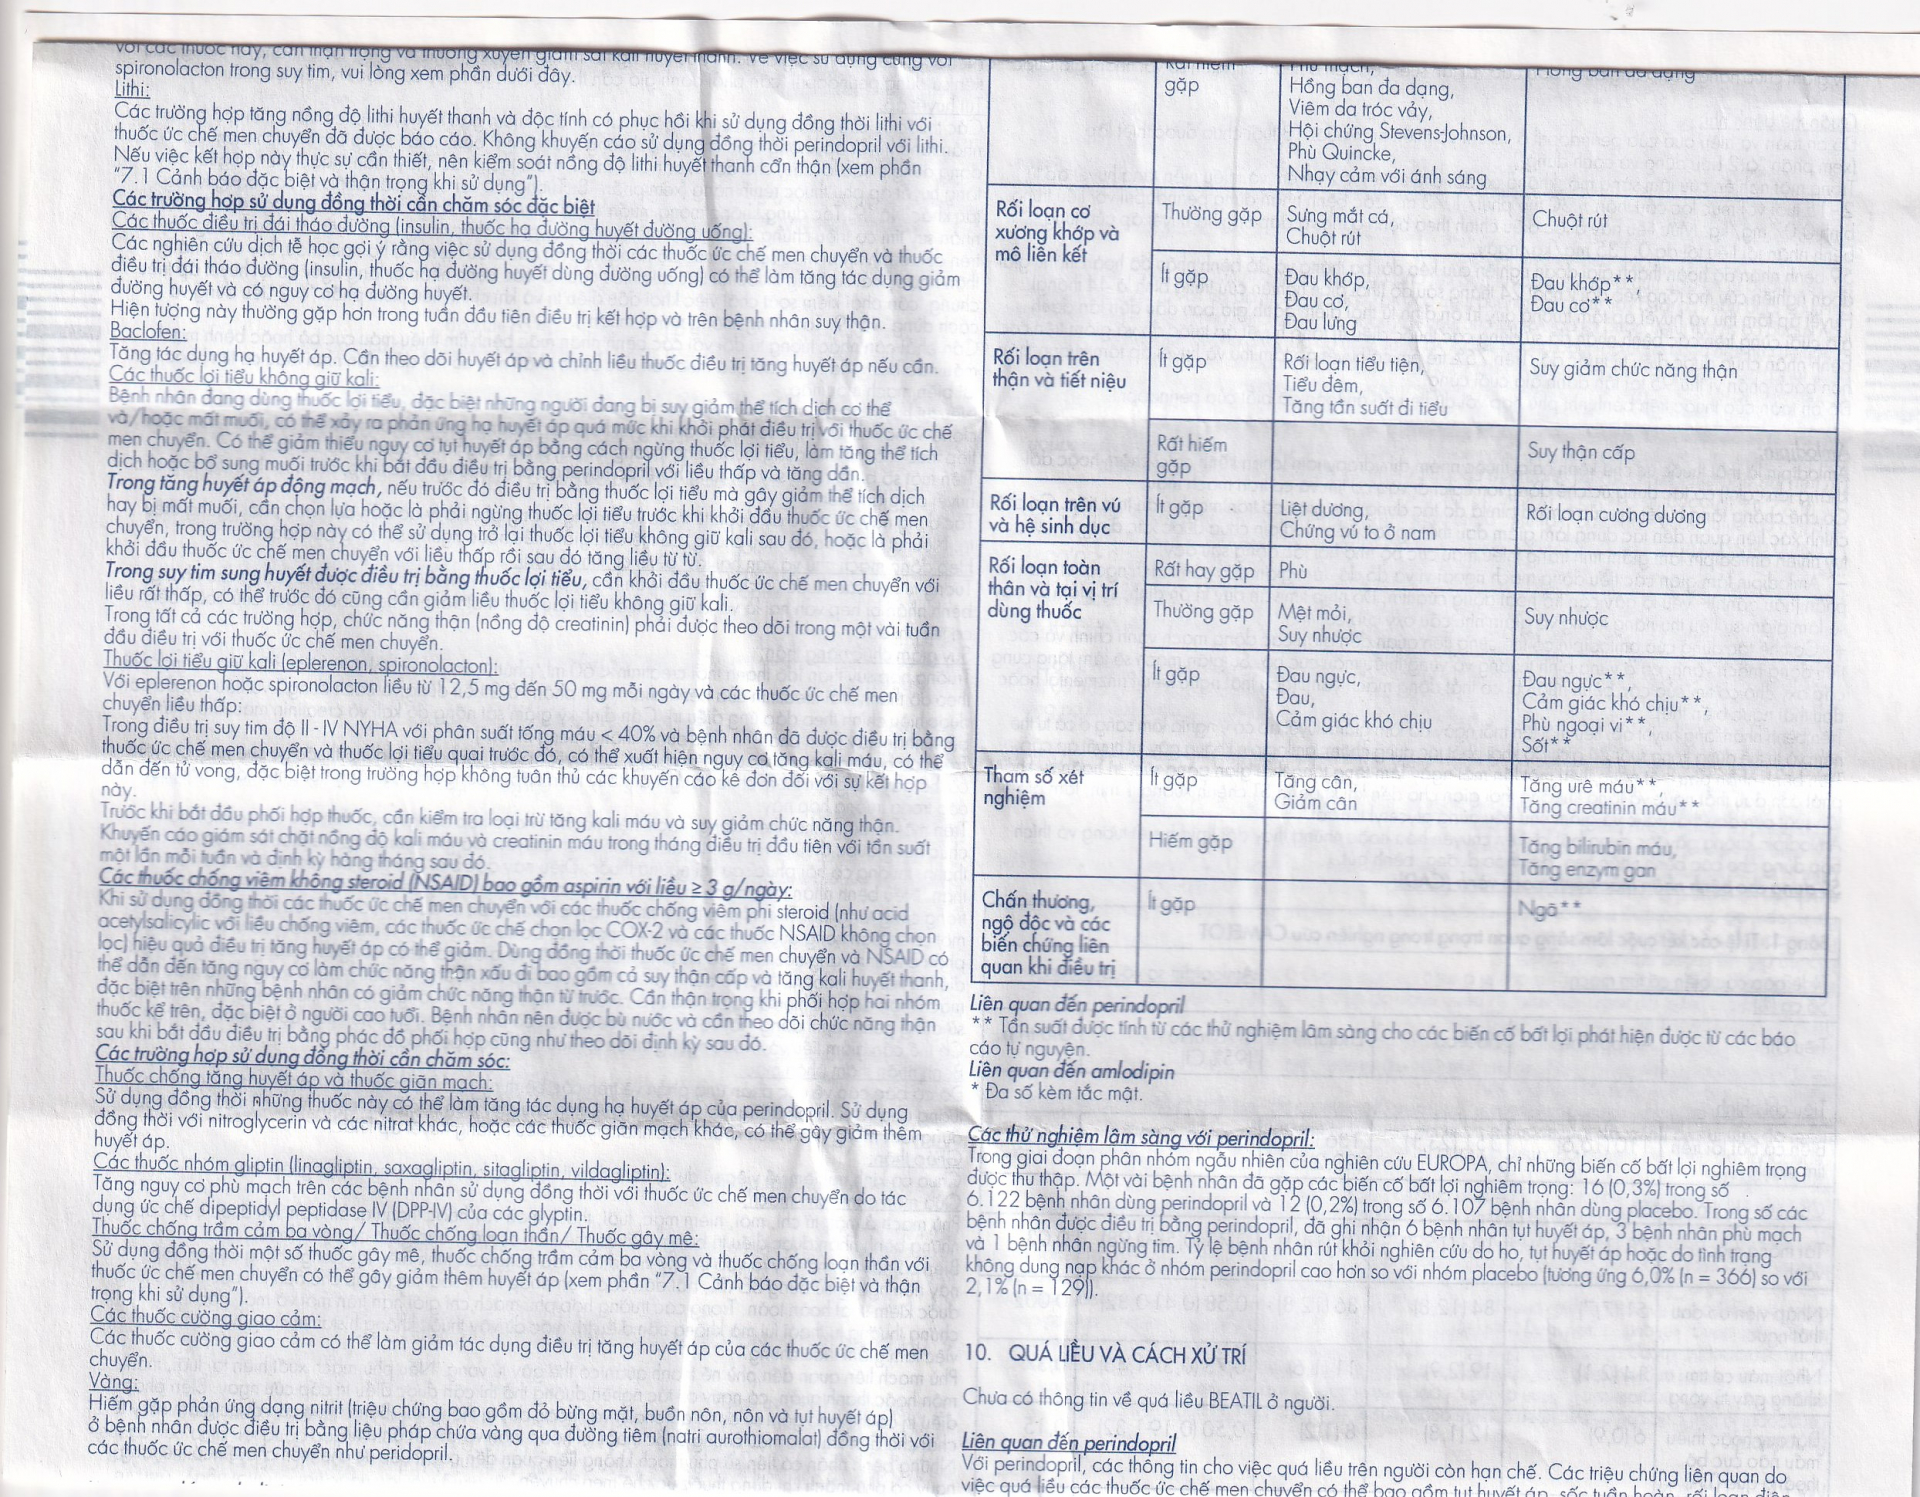 với các thuốc này, cần thận trọng và thường xuyên giám sát kali huyết thanh. Về việc sử dụng cùng với
spironolacton trong suy tim, vui lòng xem phần dưới đây.
Lithi:
Các trường hợp tăng nồng độ lithi huyết thanh và độc tính có phục hồi khi sử dụng đồng thời lithi với
thuốc ức chế men chuyển đã được báo cáo. Không khuyến cáo sử dụng đồng thời perindopril với lithi.
Nếu việc kết hợp này thực sự cần thiết, nên kiểm soát nồng độ lithi huyết thanh cẩn thận (xem phần
"7.1 Cảnh báo đặc biệt và thận trọng khi sử dụng").
Các trường hợp sử dụng đồng thời cần chăm sóc đặc biệt
Các thuốc điều trị đái tháo đường (insulin, thuốc hạ đường huyết đường uống):
Các nghiên cứu dịch tễ học gợi ý rằng việc sử dụng đồng thời các thuốc ức chế men chuyển và thuốc
điều trị đái tháo đường (insulin, thuốc hạ đường huyết dùng đường uống) có thể làm tăng tác dụng giảm
đường huyết và có nguy cơ hạ đường huyết.
Hiện tượng này thường gặp hơn trong tuần đầu tiên điều trị kết hợp và trên bệnh nhân suy thận.
Baclofen:
Tăng tác dụng hạ huyết áp. Cần theo dõi huyết áp và chỉnh liều thuốc điều trị tăng huyết áp nếu cần.
Các thuốc lợi tiểu không giữ kali:
Bệnh nhân đang dùng thuốc lợi tiểu, đặc biệt những người đang bị suy giảm thể tích dịch cơ thể
và/hoặc mất muối, có thể xảy ra phản ứng hạ huyết áp quá mức khi khởi phát điều trị với thuốc ức chế
men chuyển. Có thể giảm thiểu nguy cơ tụt huyết áp bằng cách ngừng thuốc lợi tiểu, làm tăng thể tích
dịch hoặc bổ sung muối trước khi bắt đầu điều trị bằng perindopril với liều thấp và tăng dần.
Trong tăng huyết áp động mạch, nếu trước đó điều trị bằng thuốc lợi tiểu mà gây giảm thể tích dịch
hay bị mất muối, cần chọn lựa hoặc là phải ngừng thuốc lợi tiểu trước khi khởi đầu thuốc ức chế men
chuyển, trong trường hợp này có thể sử dụng trở lại thuốc lợi tiểu không giữ kali sau đó, hoặc là phải
khởi đầu thuốc ức chế men chuyển với liều thấp rồi sau đó tăng liều từ từ.
Trong suy tim sung huyết được điều trị bằng thuốc lợi tiểu, cần khởi đầu thuốc ức chế men chuyển với
liều rất thấp, có thể trước đó cũng cần giảm liều thuốc lợi tiểu không giữ kali.
Trong tất cả các trường hợp, chức năng thận (nồng độ creatinin) phải được theo dõi trong một vài tuần
đầu điều trị với thuốc ức chế men chuyển.
Thuốc lợi tiểu giữ kali (eplerenon, spironolacton):
Với eplerenon hoặc spironolacton liều từ 12,5 mg đến 50 mg mỗi ngày và các thuốc ức chế men
chuyển liều thấp:
Trong điều trị suy tim độ II - IV NYHA với phân suất tống máu < 40% và bệnh nhân đã được điều trị bằng
thuốc ức chế men chuyển và thuốc lợi tiểu quai trước đó, có thể xuất hiện nguy cơ tăng kali máu, có thể
dẫn đến tử vong, đặc biệt trong trường hợp không tuân thủ các khuyến cáo kê đơn đối với sự kết hợp
này.
Trước khi bắt đầu phối hợp thuốc, cần kiểm tra loại trừ tăng kali máu và suy giảm chức năng thận.
Khuyến cáo giám sát chặt nồng độ kali máu và creatinin máu trong tháng điều trị đầu tiên với tần suất
một lần mỗi tuần và định kỳ hàng tháng sau đó.
Các thuốc chống viêm không steroid (NSAID) bao gồm aspirin với liều ≥ 3 g/ngày:
Khi sử dụng đồng thời các thuốc ức chế men chuyển với các thuốc chống viêm phi steroid (như acid
acetylsalicylic với liều chống viêm, các thuốc ức chế chọn lọc COX-2 và các thuốc NSAID không chọn
lọc) hiệu quả điều trị tăng huyết áp có thể giảm. Dùng đồng thời thuốc ức chế men chuyển và NSAID có
thể dẫn đến tăng nguy cơ làm chức năng thận xấu đi bao gồm cả suy thận cấp và tăng kali huyết thanh,
đặc biệt trên những bệnh nhân có giảm chức năng thận từ trước. Cần thận trọng khi phối hợp hai nhóm
thuốc kể trên, đặc biệt ở người cao tuổi. Bệnh nhân nên được bù nước và cần theo dõi chức năng thận
sau khi bắt đầu điều trị bằng phác đồ phối hợp cũng như theo dõi định kỳ sau đó.
Các trường hợp sử dụng đồng thời cần chăm sóc:
Thuốc chống tăng huyết áp và thuốc giãn mạch:
Sử dụng đồng thời những thuốc này có thể làm tăng tác dụng hạ huyết áp của perindopril. Sử dụng
đồng thời với nitroglycerin và các nitrat khác, hoặc các thuốc giãn mạch khác, có thể gây giảm thêm
huyết áp.
Các thuốc nhóm gliptin (linagliptin, saxagliptin, sitagliptin, vildagliptin):
Tăng nguy cơ phù mạch trên các bệnh nhân sử dụng đồng thời với thuốc ức chế men chuyển do tác
dụng ức chế dipeptidyl peptidase IV (DPP-IV) của các glyptin.
Thuốc chống trầm cảm ba vòng/ Thuốc chống loạn thần/ Thuốc gây mê:
Sử dụng đồng thời một số thuốc gây mê, thuốc chống trầm cảm ba vòng và thuốc chống loạn thần với
thuốc ức chế men chuyển có thể gây giảm thêm huyết áp (xem phần "7.1 Cảnh báo đặc biệt và thận
trọng khi sử dụng").
Các thuốc cường giao cảm:
Các thuốc cường giao cảm có thể làm giảm tác dụng điều trị tăng huyết áp của các thuốc ức chế men
chuyển.
Vàng:
Hiếm gặp phản ứng dạng nitrit (triệu chứng bao gồm đỏ bừng mặt, buồn nôn, nôn và tụt huyết áp)
ở bệnh nhân được điều trị bằng liệu pháp chứa vàng qua đường tiêm (natri aurothiomalat) đồng thời với
các thuốc ức chế men chuyển như peridopril.
Rất hiếm gặp
Phù mạch,
Hồng ban đa dạng,
Viêm da tróc vảy,
Hội chứng Stevens-Johnson,
Phù Quincke,
Nhạy cảm với ánh sáng
Hồng ban đa dạng
Rối loạn cơ
xương khớp và
mô liên kết
Thường gặp
Sưng mắt cá,
Chuột rút
Chuột rút
Ít gặp
Đau khớp,
Đau cơ,
Đau lưng
Đau khớp**,
Đau cơ**
Rối loạn trên
thận và tiết niệu
Ít gặp
Rối loạn tiểu tiện,
Tiểu đêm,
Tăng tần suất đi tiểu
Suy giảm chức năng thận
Rất hiếm
gặp
Suy thận cấp
Rối loạn trên vú
và hệ sinh dục
Ít gặp
Liệt dương,
Chứng vú to ở nam
Rối loạn cương dương
Rối loạn toàn
thân và tại vị trí
dùng thuốc
Rất hay gặp
Phù
Thường gặp
Mệt mỏi,
Suy nhược
Suy nhược
Ít gặp
Đau ngực,
Đau,
Cảm giác khó chịu
Đau ngực**,
Cảm giác khó chịu**,
Phù ngoại vi**,
Sốt**
Tham số xét
nghiệm
Ít gặp
Tăng cân,
Giảm cân
Tăng urê máu**,
Tăng creatinin máu**
Hiếm gặp
Tăng bilirubin máu,
Tăng enzym gan
Chấn thương,
ngộ độc và các
biến chứng liên
quan khi điều trị
Ít gặp
Ngã**
Liên quan đến perindopril
** Tần suất được tính từ các thử nghiệm lâm sàng cho các biến cố bất lợi phát hiện được từ các báo
cáo tự nguyện.
Liên quan đến amlodipin
* Đa số kèm tắc mật.
Các thử nghiệm lâm sàng với perindopril:
Trong giai đoạn phân nhóm ngẫu nhiên của nghiên cứu EUROPA, chỉ những biến cố bất lợi nghiêm trọng
được thu thập. Một vài bệnh nhân đã gặp các biến cố bất lợi nghiêm trọng: 16 (0,3%) trong số
6.122 bệnh nhân dùng perindopril và 12 (0,2%) trong số 6.107 bệnh nhân dùng placebo. Trong số các
bệnh nhân được điều trị bằng perindopril, đã ghi nhận 6 bệnh nhân tụt huyết áp, 3 bệnh nhân phù mạch
và 1 bệnh nhân ngừng tim. Tỷ lệ bệnh nhân rút khỏi nghiên cứu do ho, tụt huyết áp hoặc do tình trạng
không dung nạp khác ở nhóm perindopril cao hơn so với nhóm placebo (tương ứng 6,0% (n = 366) so với
2,1% (n = 129)).
10. QUÁ LIỀU VÀ CÁCH XỬ TRÍ
Chưa có thông tin về quá liều BEATIL ở người.
Liên quan đến perindopril
Với perindopril, các thông tin cho việc quá liều trên người còn hạn chế. Các triệu chứng liên quan do
việc quá liều các thuốc ức chế men chuyển có thể bao gồm tụt huyết áp, sốc tuần hoàn, rối loạn điện